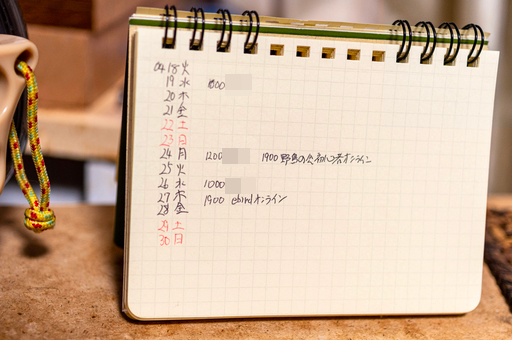 04 18 火
19 水 1000
20 木
21 金
22 土
23 日
24 月 1200 1900 野鳥の会 オンライン
25 火
26 水 1000
27 木 1900 ebirdオンライン
28 金
29 土
30 日